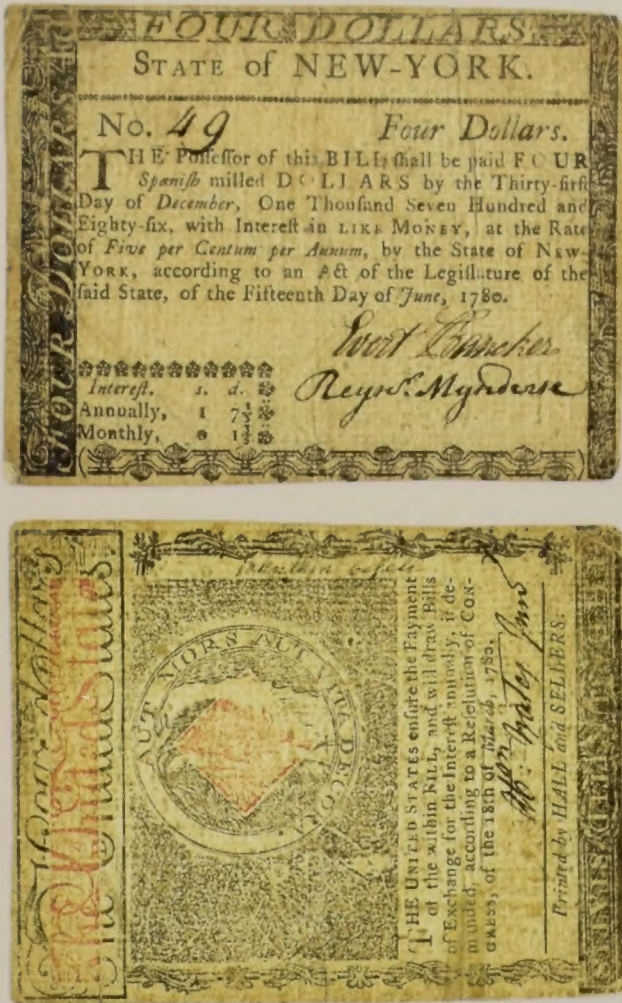 FOUR DOLLARS.
FOUR DOLLARS
STATE of NEW-YORK.
No. 49 Four Dollars.
THE Poſſeſſor of this BILL ſhall be paid FOUR
Spaniſh milled DOLLARS by the Thirty-firſt
Day of December, One Thouſand Seven Hundred and
Eighty-ſix, with Intereſt in LIKE MONEY, at the Rate
of Five per Centum per Annum, by the State of NEW-
YORK, according to an Act of the Legiſlature of the
ſaid State, of the Fifteenth Day of June, 1780.
Evert Bancker
Reyrs. Mynderse
Intereſt. s. d.
Annually, 1 7½
Monthly, 0 1½
Four Dollars
The United States.
AUT MORS AUT VITA DECORA
THE UNITED STATES enſure the Payment
of the within BILL, and will draw Bills
of Exchange for the Intereſt annually, if de-
manded, according to a Reſolution of CON-
GRESS, of the 18th of March, 1780.
Printed by HALL and SELLERS.